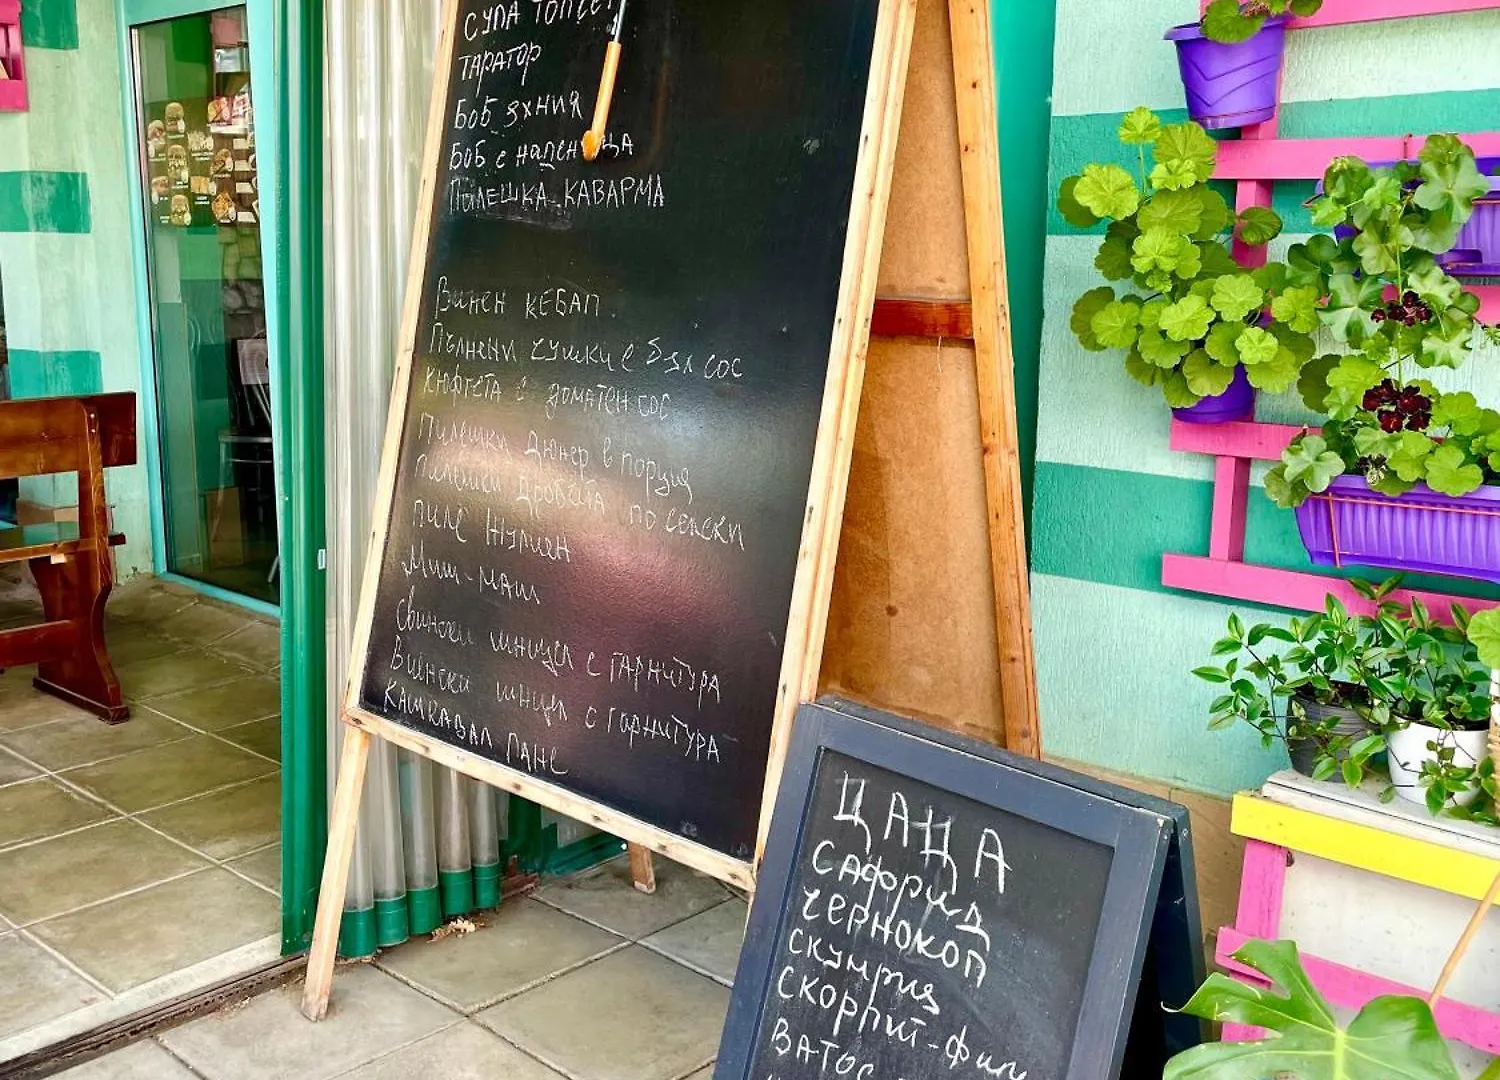 СУПА ТОПЧЕТ
ТАРАТОР
БОБ ЯХНИЯ
БОБ с наденица
ПИЛЕШКА КАВАРМА
Винен КЕБАП
Пълнени чушки с бял сос
Кюфтета с доматен сос
Пилешки дюнер в порция
Пилешки дробчета по селски
Пиле Жулиен
Миш-маш
Свински шницел с гарнитура
Виенски шницел с гарнитура
Кашкавал пане
ЦАЦА
САФРИД
ЧЕРНОКОП
СКУМРИЯ
СКОРПИТ-фил
ВАТОС